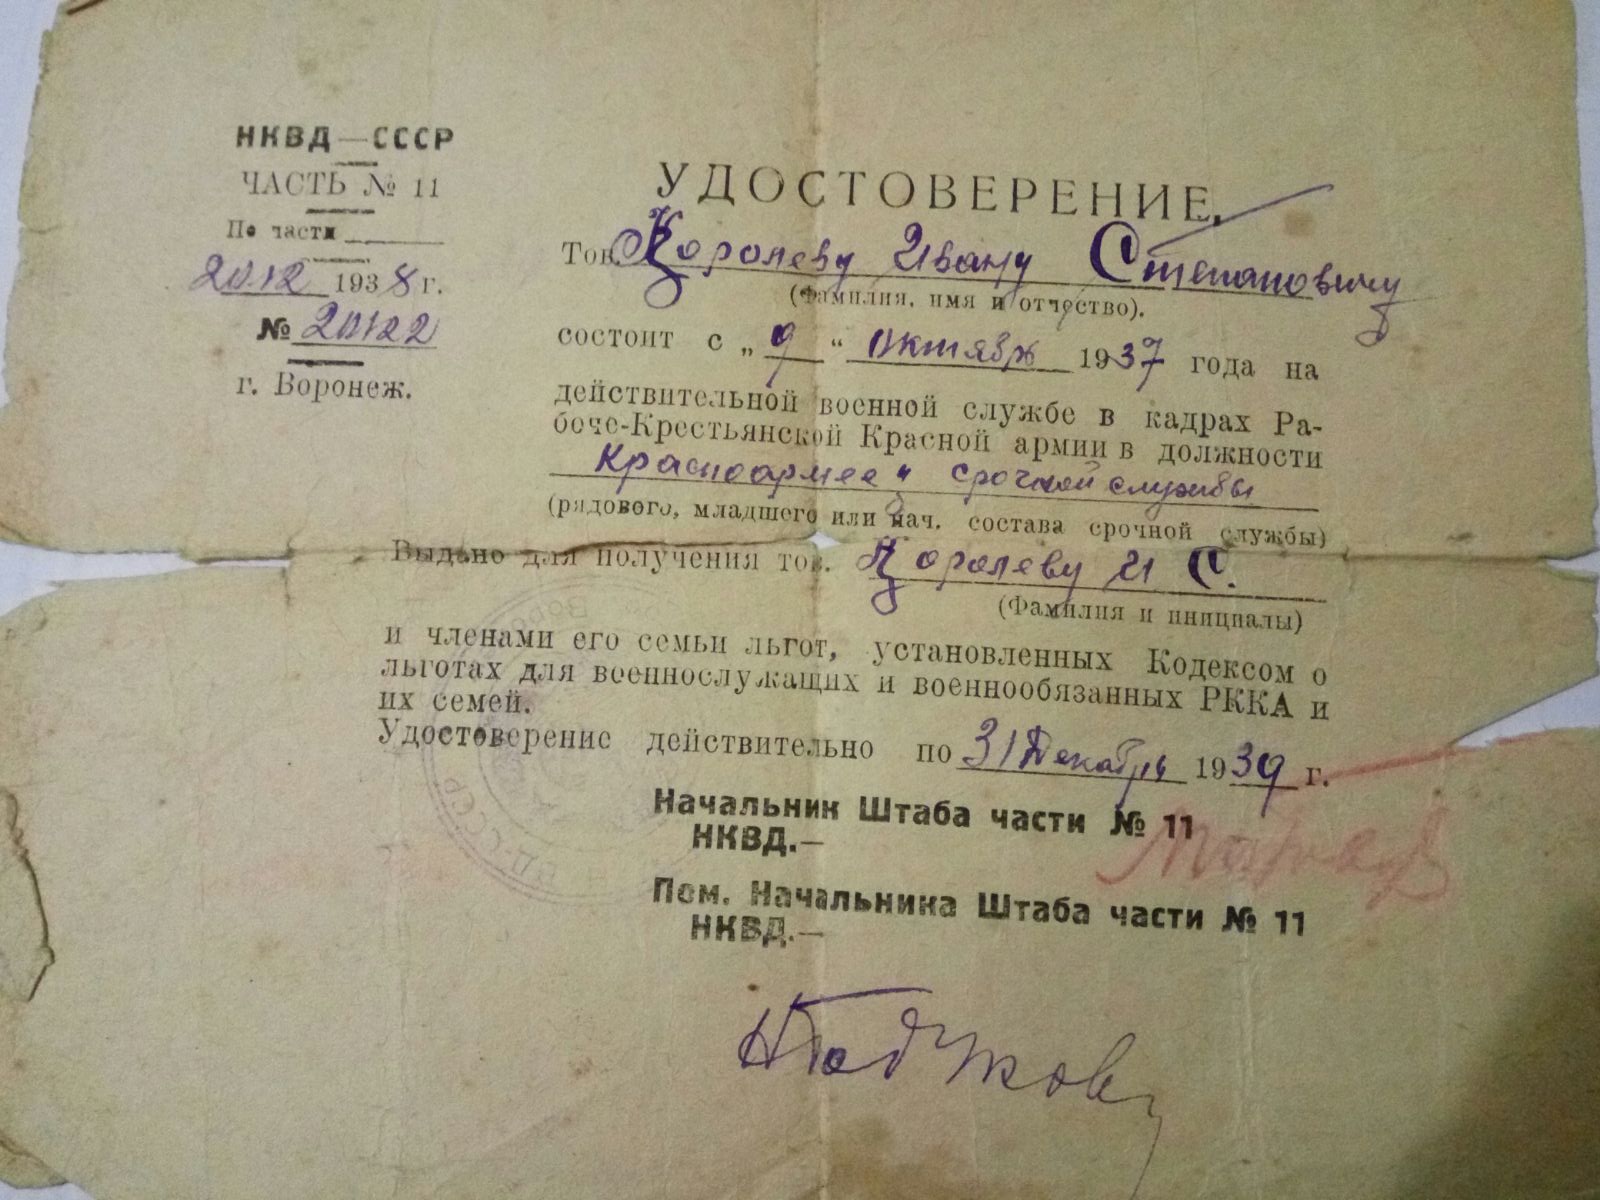 НКВД—СССР
ЧАСТЬ № 11
По части
20.12 1938 г.
№
г. Воронеж.
УДОСТОВЕРЕНИЕ.
Тов. Королеву Ивану Степановичу
(Фамилия, имя и отчество).
состоит с „9“ Октября 1937 года на
действительной военной службе в кадрах Ра-
боче-Крестьянской Красной армии в должности
Красноармеец срочной службы
(рядового, младшего или нач. состава срочной службы)
Выдано для получения тов. Королеву И С.
(Фамилия и инициалы)
и членами его семьи льгот, установленных Кодексом о
льготах для военнослужащих и военнообязанных РККА и
их семей.
Удостоверение действительно по 31 Декабря 1939 г.
Начальник Штаба части № 11
НКВД.—
Пом. Начальника Штаба части № 11
НКВД.—